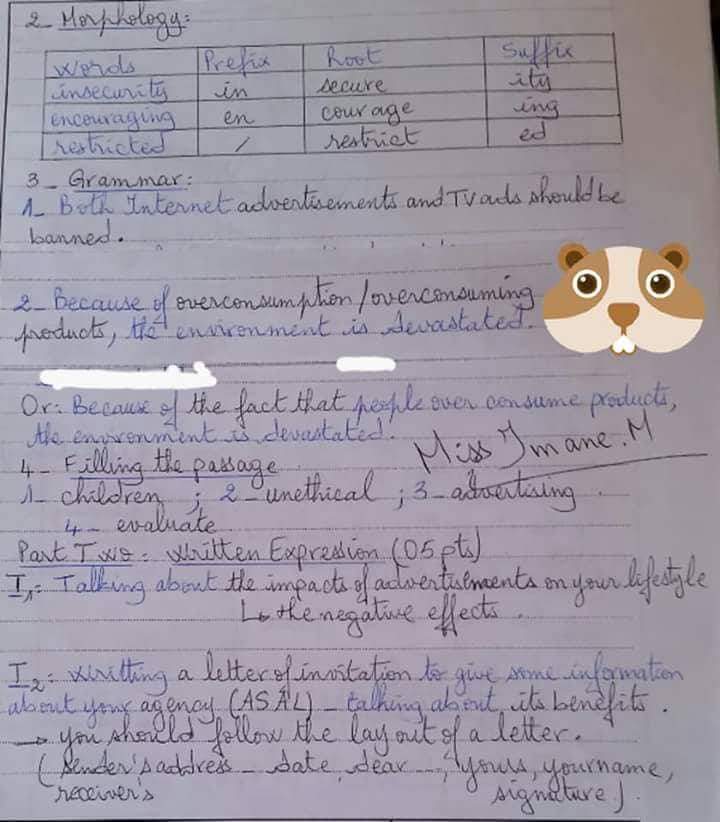 2_ Morphology:
words Prefix Root Suffix
insecurity in secure ity
encouraging en courage ing
restricted / restrict ed
3_ Grammar:
1_ Both Internet advertisements and TV ads should be
banned.
2_ Because of overconsumption/overconsuming
products, the environment is devastated.
Or: Because of the fact that people over consume products,
the environment is devastated.
Miss Imane.M
4_ Filling the passage
1_ children ; 2_unethical ; 3_advertising.
4_ evaluate
Part Two: written Expression (05 pts)
I1: Talking about the impacts of advertisements on your lifestyle
↳ the negative effects.
I2: writting a letter of invitation to give some information
about your agency (ASAL) _ talking about its benefits.
→ you should follow the layout of a letter.
(sender's address _ date, dear ..., yours, yourname,
receiver's signature).